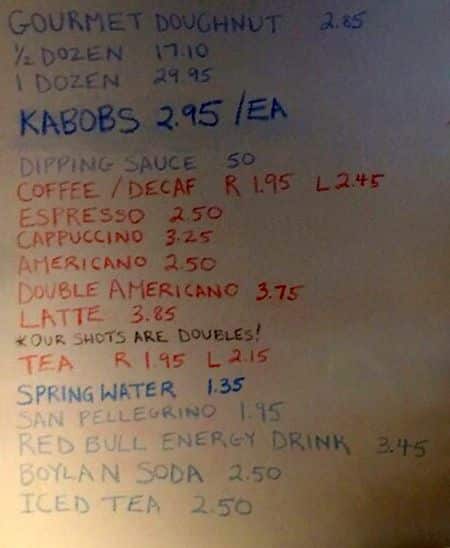 GOURMET DOUGHNUT 2.85
1/2 DOZEN 17.10
1 DOZEN 29.95
KABOBS 2.95 /EA
DIPPING SAUCE 50
COFFEE / DECAF R 1.95 L 2.45
ESPRESSO 2.50
CAPPUCCINO 3.25
AMERICANO 2.50
DOUBLE AMERICANO 3.75
LATTE 3.85
*OUR SHOTS ARE DOUBLES!
TEA R 1.95 L 2.15
SPRING WATER 1.35
SAN PELLEGRINO 1.95
RED BULL ENERGY DRINK 3.45
BOYLAN SODA 2.50
ICED TEA 2.50